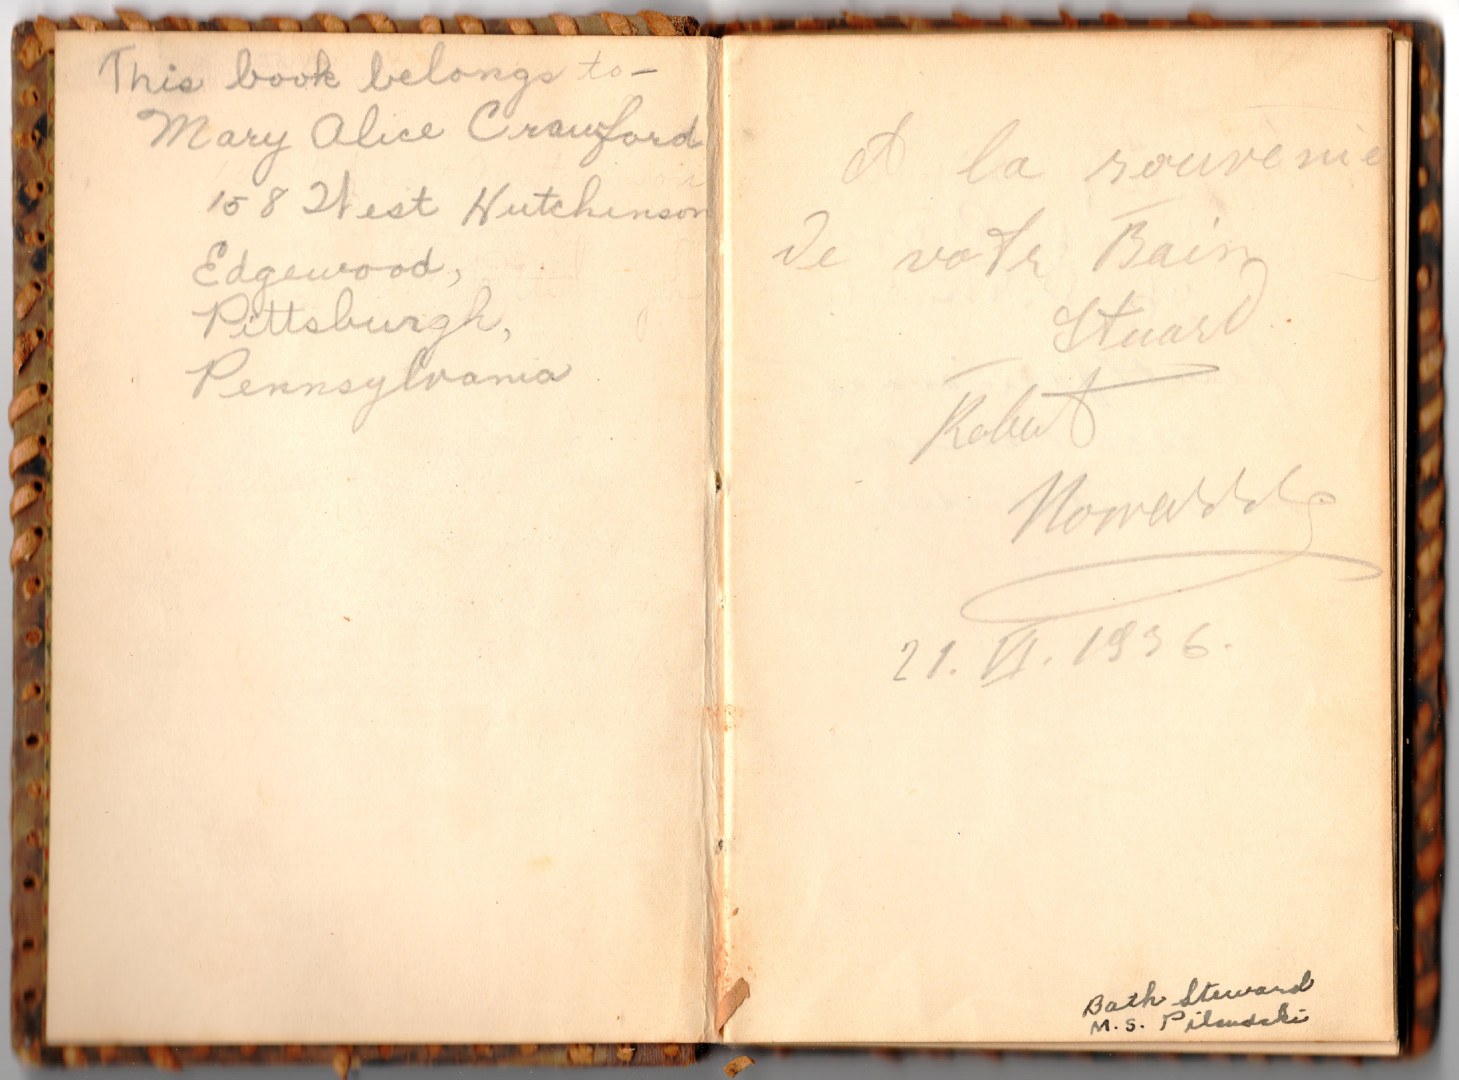 This book belongs to—
Mary Alice Crawford
158 West Hutchinson
Edgewood,
Pittsburgh,
Pennsylvania
A la souvenie
De votr Bain
Stuard.
Robert
21. VI. 1936.
Bath Steward
M. S. Pilsudski